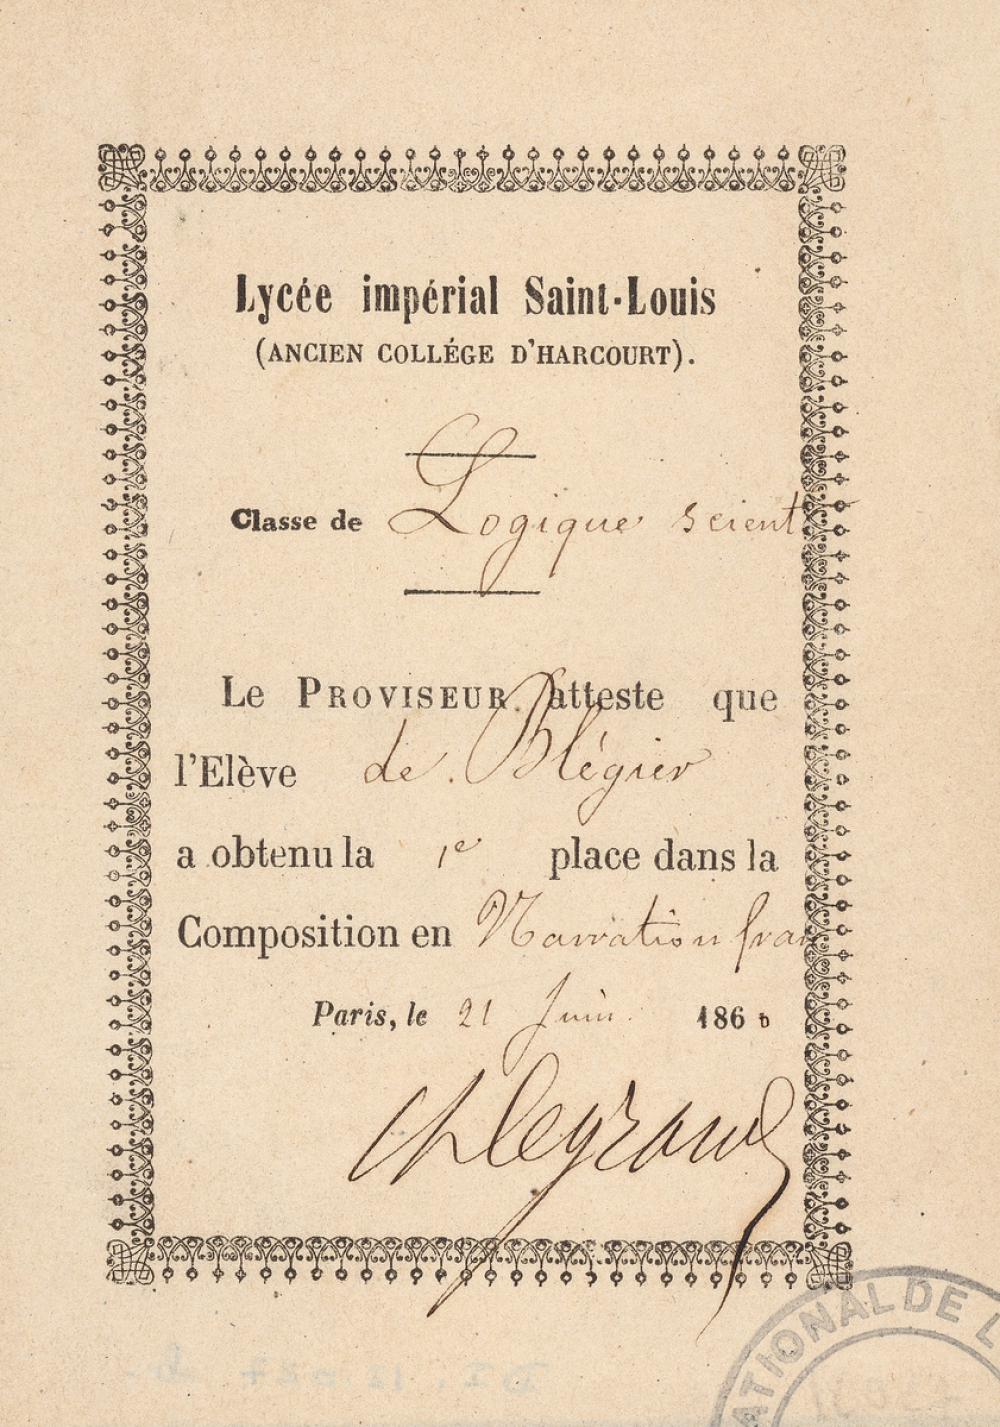 Lycée impérial Saint-Louis
(ANCIEN COLLÉGE D'HARCOURT).
Classe de Logique scient
Le PROVISEUR atteste que
l'Elève de Blégier
a obtenu la 1e place dans la
Composition en Narration fran
Paris, le 21 Juin 1860
Ch Legrand
TIONAL DE L